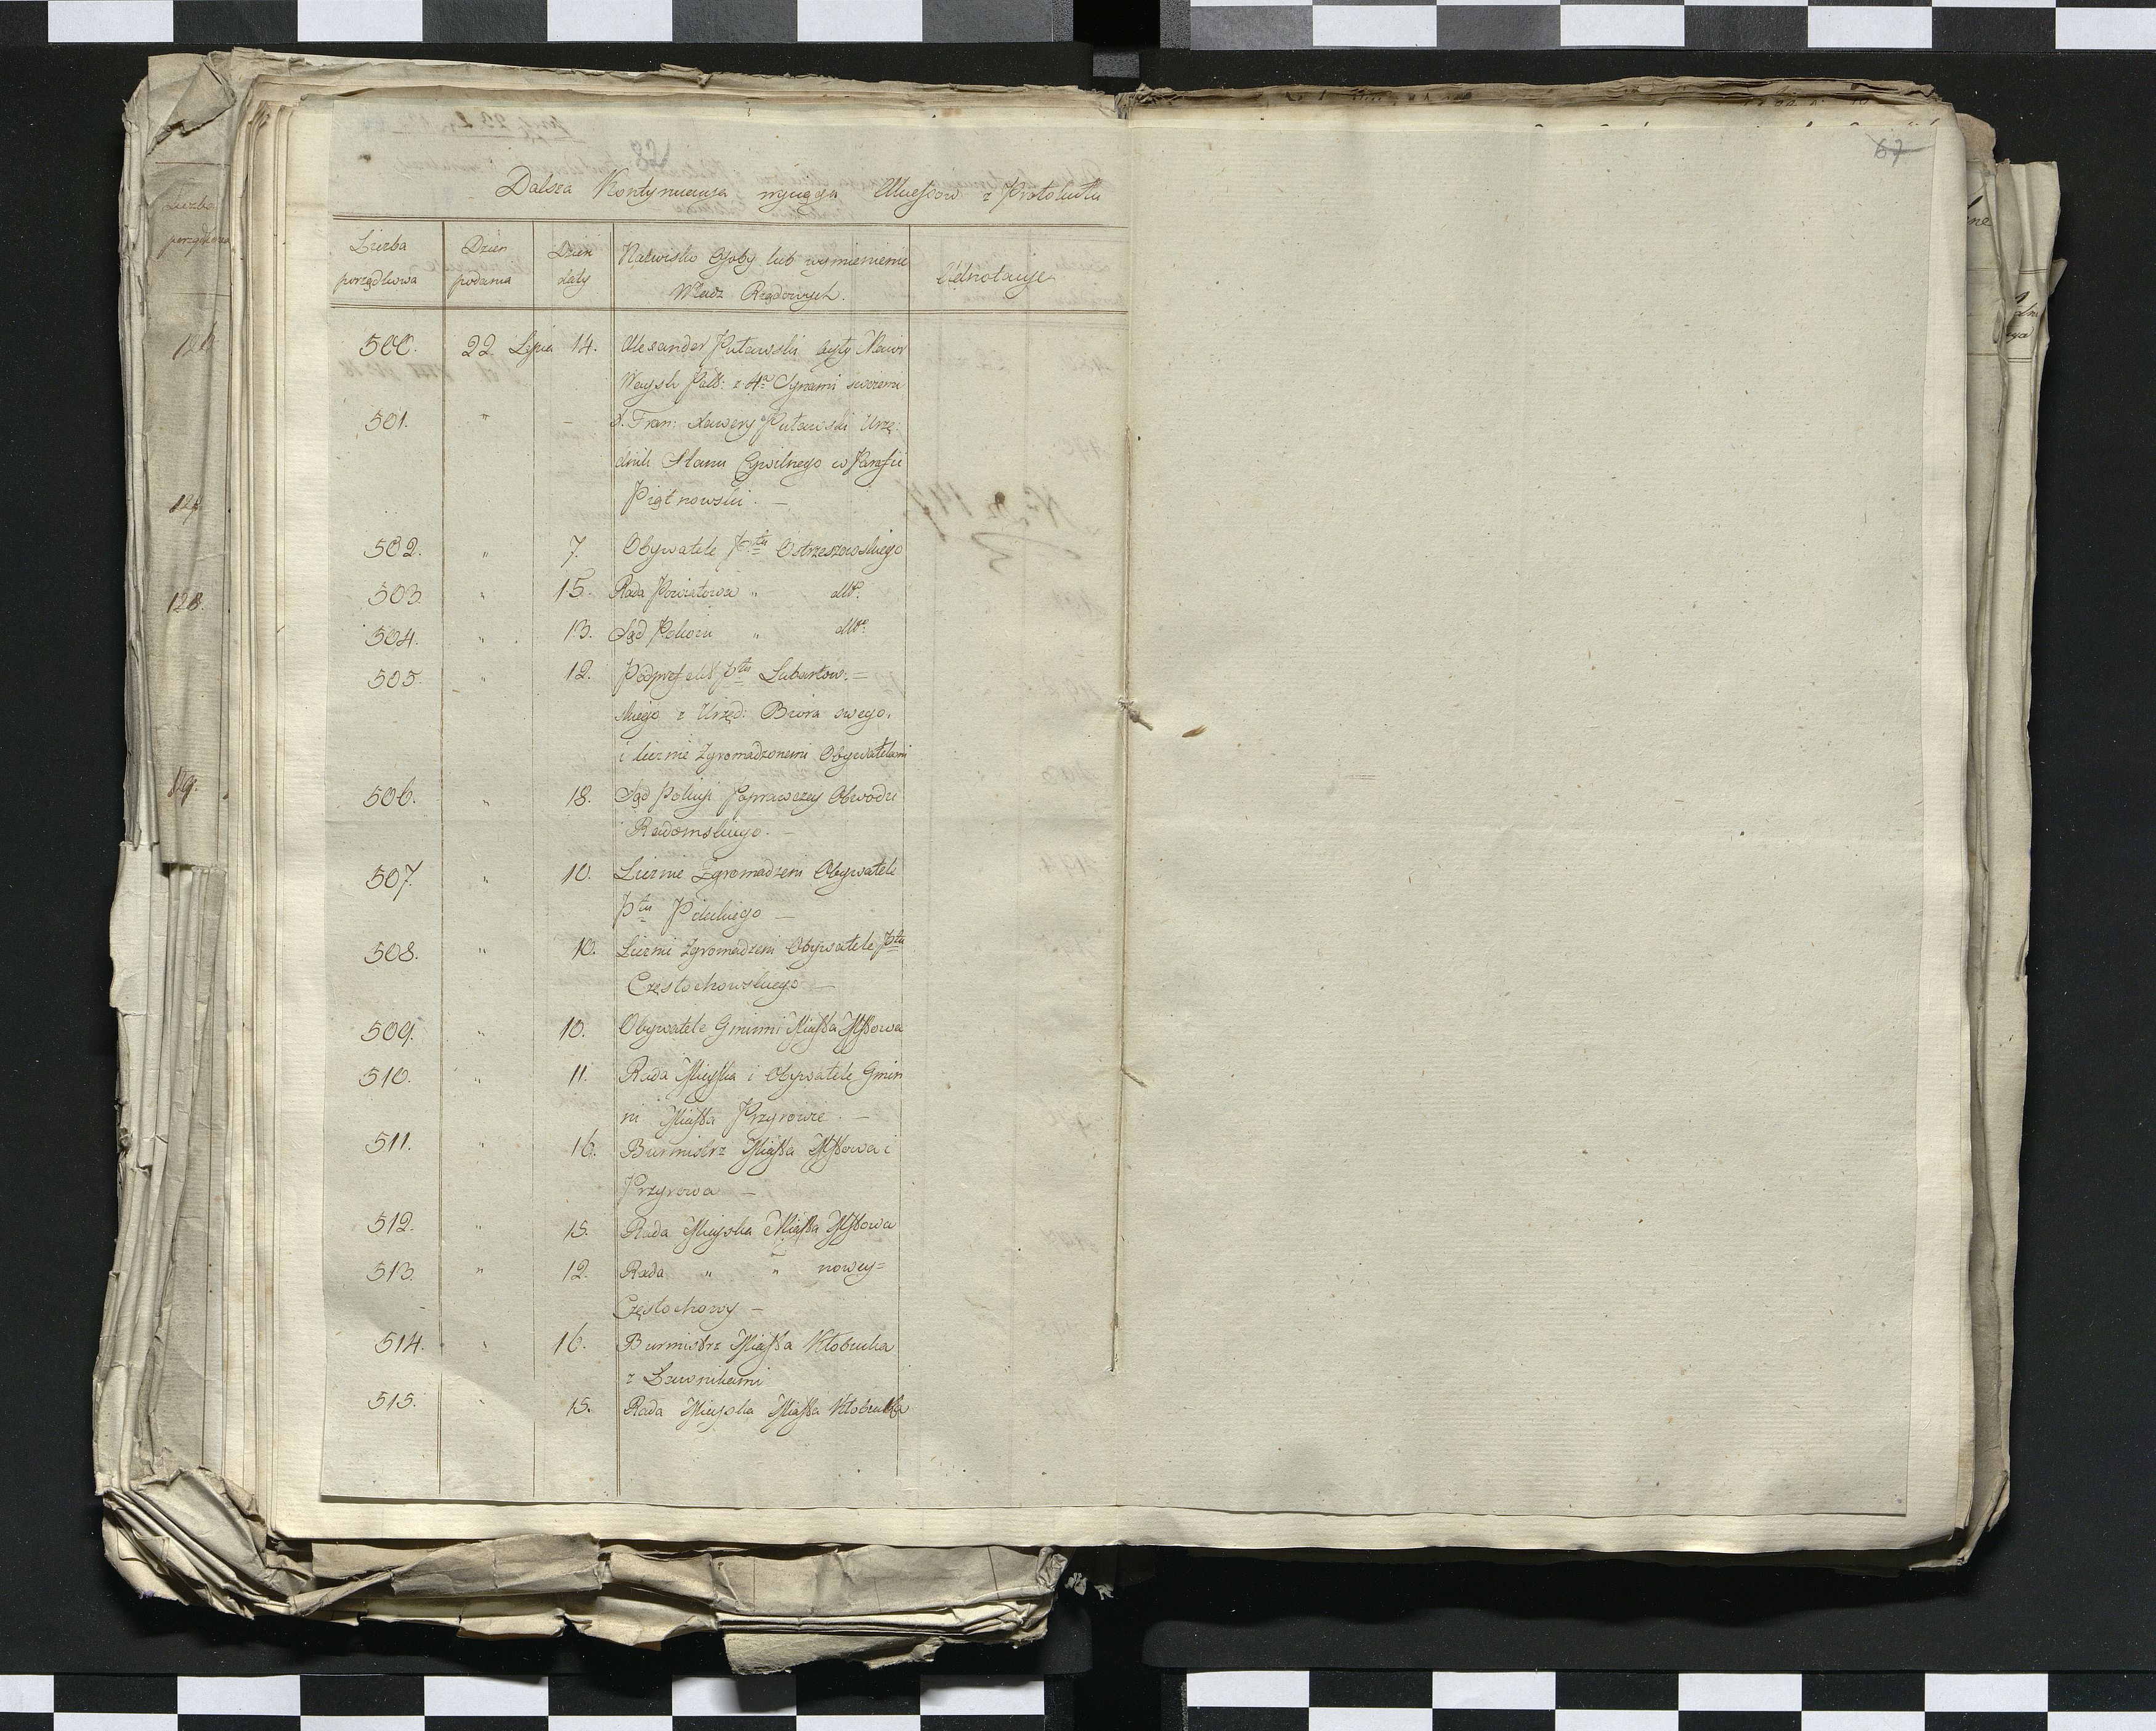 82
67
Dalsza Kontynuacya wyciągu Akcessow z Protokułu
Liczba porządkowa
Dzień podania
Dzień daty
Nazwisko Osoby lub wymienienie Władz Rządowych.
Adnotacye
500. 22 Lipca 14. Alexander Putawski były Maior
Woysk Pols: z 4a Synami swoiemi
501. " – X. Fran: Xawery Putawski Urzę:
dnik Stanu Cywilnego w Parafii
Piątnowski. –
502. " 7. Obywatele Ptu Ostrzeszowskiego
503. " 15. Rada Powiatowa " dtto.
504. " 13. Sąd Pokoiu " dtto.
505. " 12. Podprefekt Ptu Lubartow:=
skiego z Urzęd: Biora swego.
i licznie zgromadzonemi Obywatelami
506. " 18. Sąd Policyi Poprawczey Obwodu
Radomskiego. –
507. " 10. Licznie Zgromadzeni Obywatele
Ptu Pilickiego –
508. " 10. Liczni zgromadzeni Obywatele Ptu
Częstochowskiego –
509. " 10. Obywatele Gminni Miasta Mstowa
510. " 11. Rada Mieyska i Obywatele Gmin
ni Miasta Przyrowie. –
511. " 16. Burmistrz Miasta Mstowa i
Przyrowa –
512. " 15. Rada Mieyska Miasta Mstowa
513. " 12. Rada " " nowey=
Częstochowy –
514. " 16. Burmistrz Miasta Kłobucka
z Ławnikami
515. " 15. Rada Mieyska Miasta Kłobucka
Liczba
porządkowa
128.